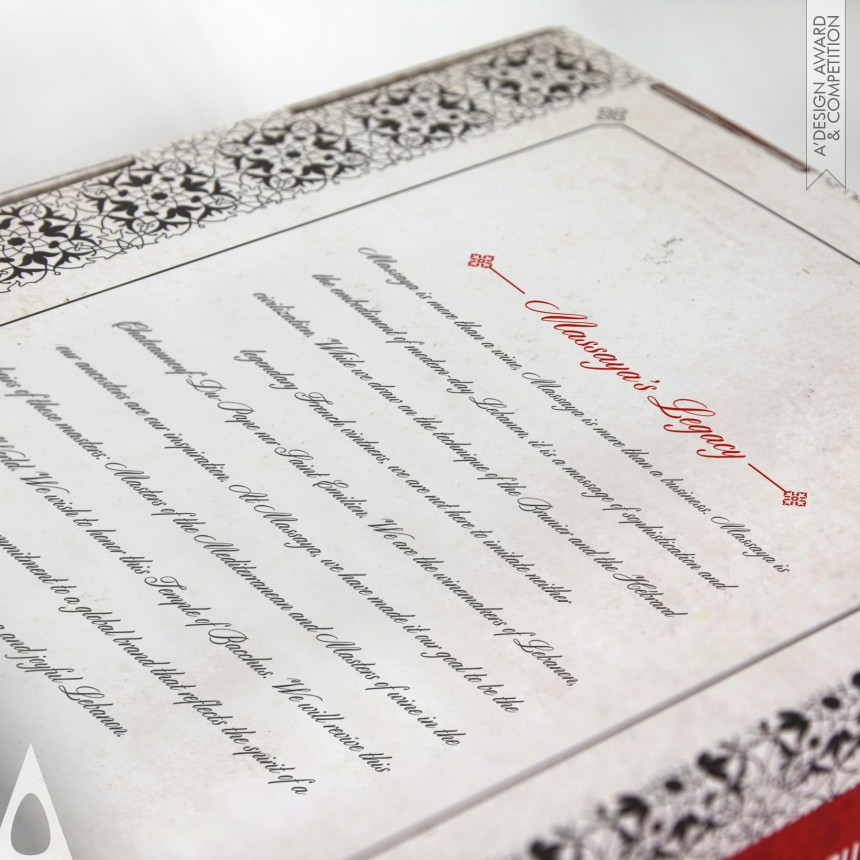 Massaya's Legacy
Massaya is more than a wine. Massaya is more than a business. Massaya is
the embodiment of modern-day Lebanon, it is a message of sophistication and
civilization. While we draw on the technique of the Brunier and the Hébrard
legendary French vintners, we are not here to imitate neither
Chateauneuf-Du-Pape nor Saint Emilion. We are the winemakers of Lebanon,
our ancestors are our inspiration. At Massaya, we have made it our goal to be the
of those masters: Masters of the Mediterranean and Masters of wine in the
We wish to honor this Temple of Bacchus. We will revive this
to a global brand that reflects the spirit of a
and joyful Lebanon.
A' DESIGN AWARD
& COMPETITION